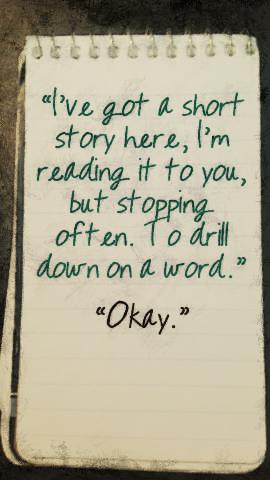 “I’ve got a short
story here, I’m
reading it to you,
but stopping
often. To drill
down on a word.”
“Okay.”